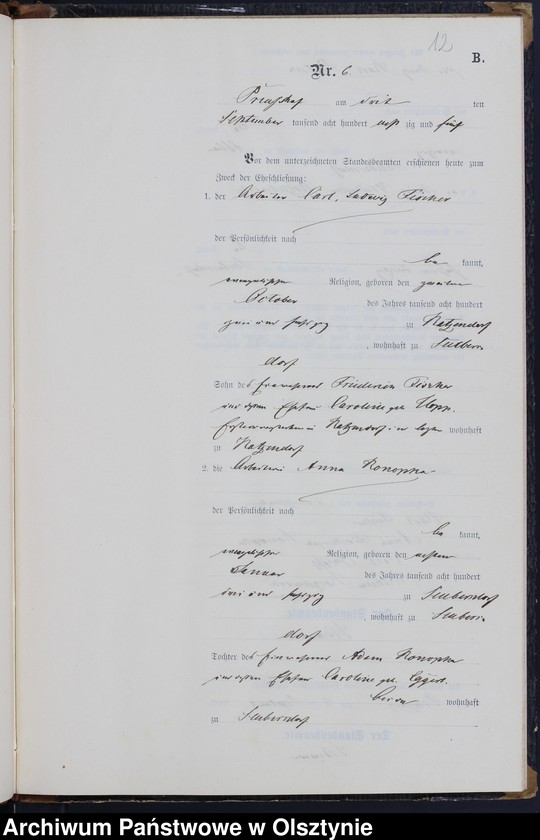 12
B.
Nr. 6.
am ten
September tausend acht hundert acht zig und fünf
Vor dem unterzeichneten Standesbeamten erschienen heute zum
Zweck der Eheschließung:
1. der Arbeiter Carl, Ludwig Fischer
der Persönlichkeit nach
be kannt,
evangelischer Religion, geboren den zweiten
October des Jahres tausend acht hundert
zwei und sechzig zu Katzendorf
, wohnhaft zu Seubers
dorf
Sohn des Einwohners Friedrich Fischer
und dessen Ehefrau Caroline geb.
Katzendorf wohnhaft
zu Katzendorf
2. die Arbeiterin Anna Konopka
der Persönlichkeit nach
be kannt,
evangelischer Religion, geboren den achten
Januar des Jahres tausend acht hundert
drei und sechzig zu Seubersdorf
, wohnhaft zu Seubers
dorf
Tochter des Einwohners Adam Konopka
und dessen Ehefrau Caroline geb. Eggert.
beide wohnhaft
zu Seubersdorf
Archiwum Państwowe w Olsztynie